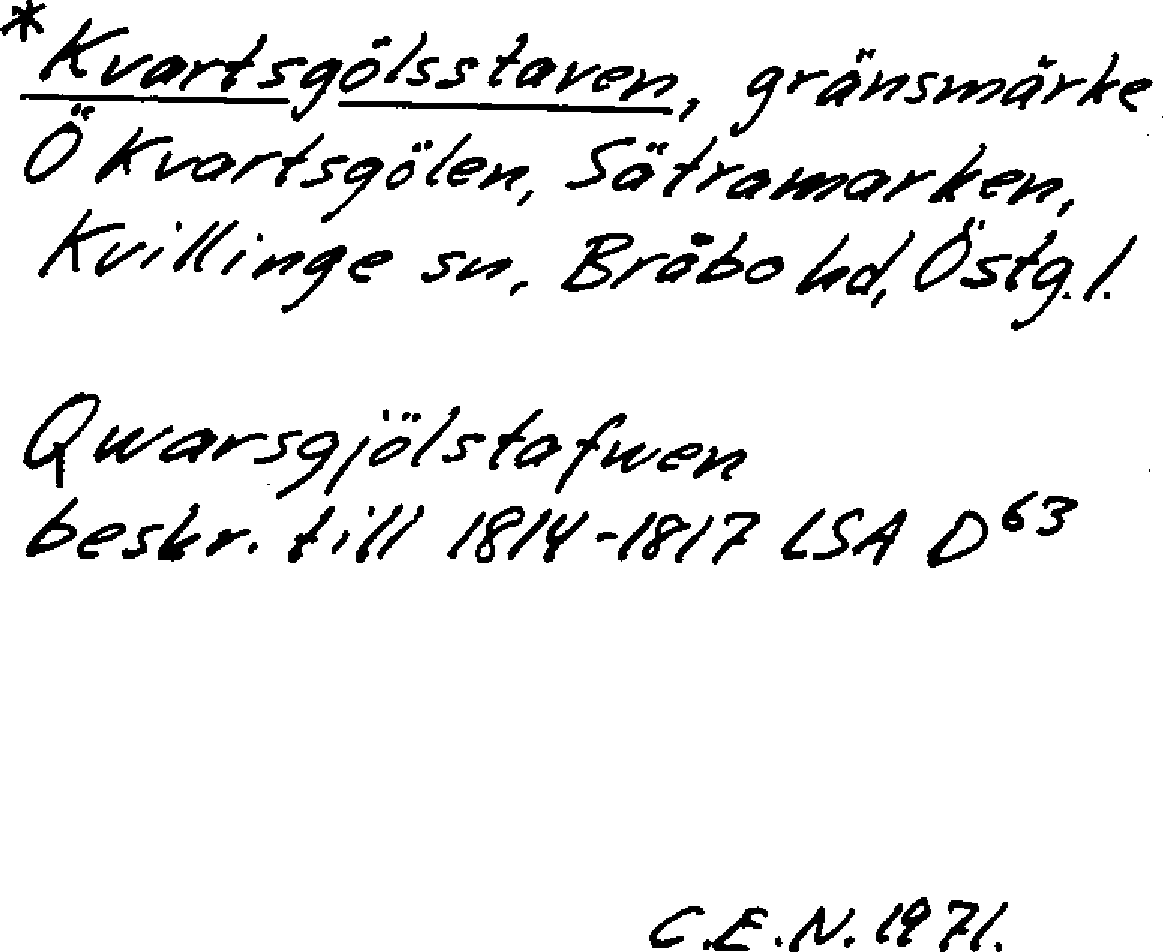 *Kvartsgölsstaven, gränsmärke
Ö Kvartsgölen, Sätramarken,
Kvillinge sn, Bråbo hd, Östg.l.
Qwarsgjölstafwen
beskr. till 1814-1817 LSA D63
C.E.N. 1971.